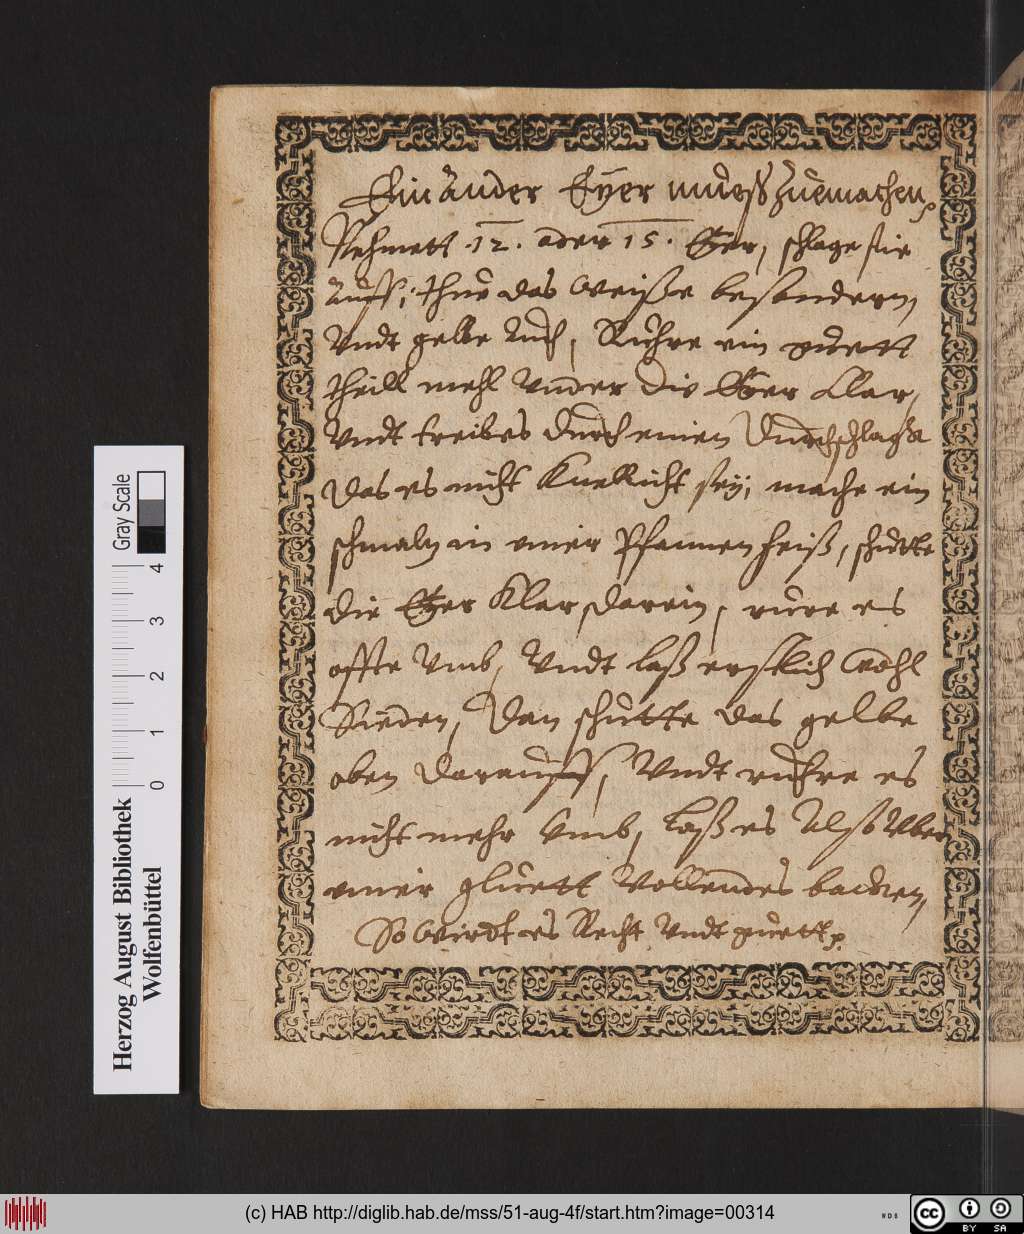 Ein ander Eÿer mueß zuemachen
Nehmett .12. oder 15. Eÿer, schlage sie
auff, thue das weiße besondern,
Vndt gelbe auch, Rühre ein guett
theill mehl vnder die Eÿer klar,
Vndt treibes durch einen durchschlagk
das es nicht knellicht seÿ, mache ein
schmaltz in einer Pfannen heiß, schütte
die Eÿer klar darein, rüre es
offte vmb, Vndt laß erstlich wohl
Sieden, dan schütte das gelbe
oben darauff, Vndt rühre es
nicht mehr vmb, laß es alß vber
einer gluett vollendes backen,
So wirdt es Recht Vndt guett
Herzog August Bibliothek
Wolfenbüttel
0 1 2 3 4
Gray Scale
(c) HAB http://diglib.hab.de/mss/51-aug-4f/start.htm?image=00314
WDB
cc BY SA